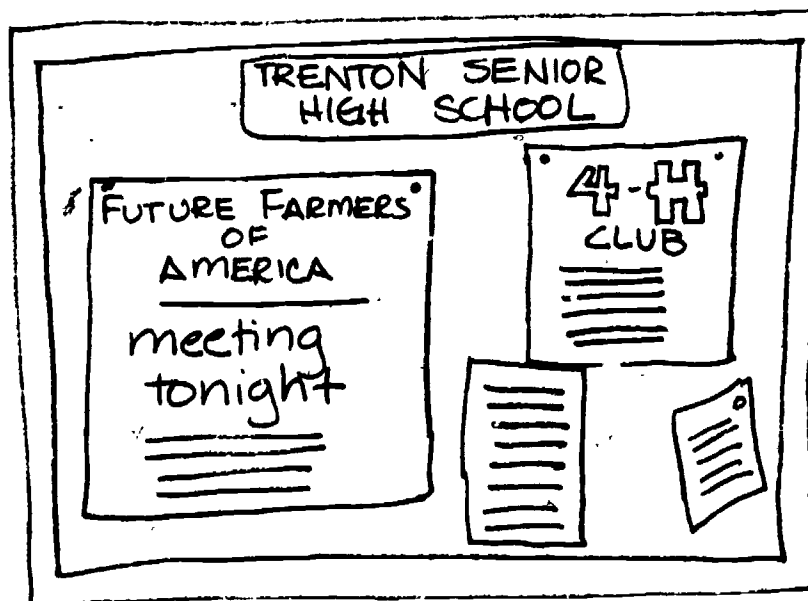 TRENTON SENIOR
HIGH SCHOOL
FUTURE FARMERS
OF
AMERICA
meeting
tonight
4-H
CLUB